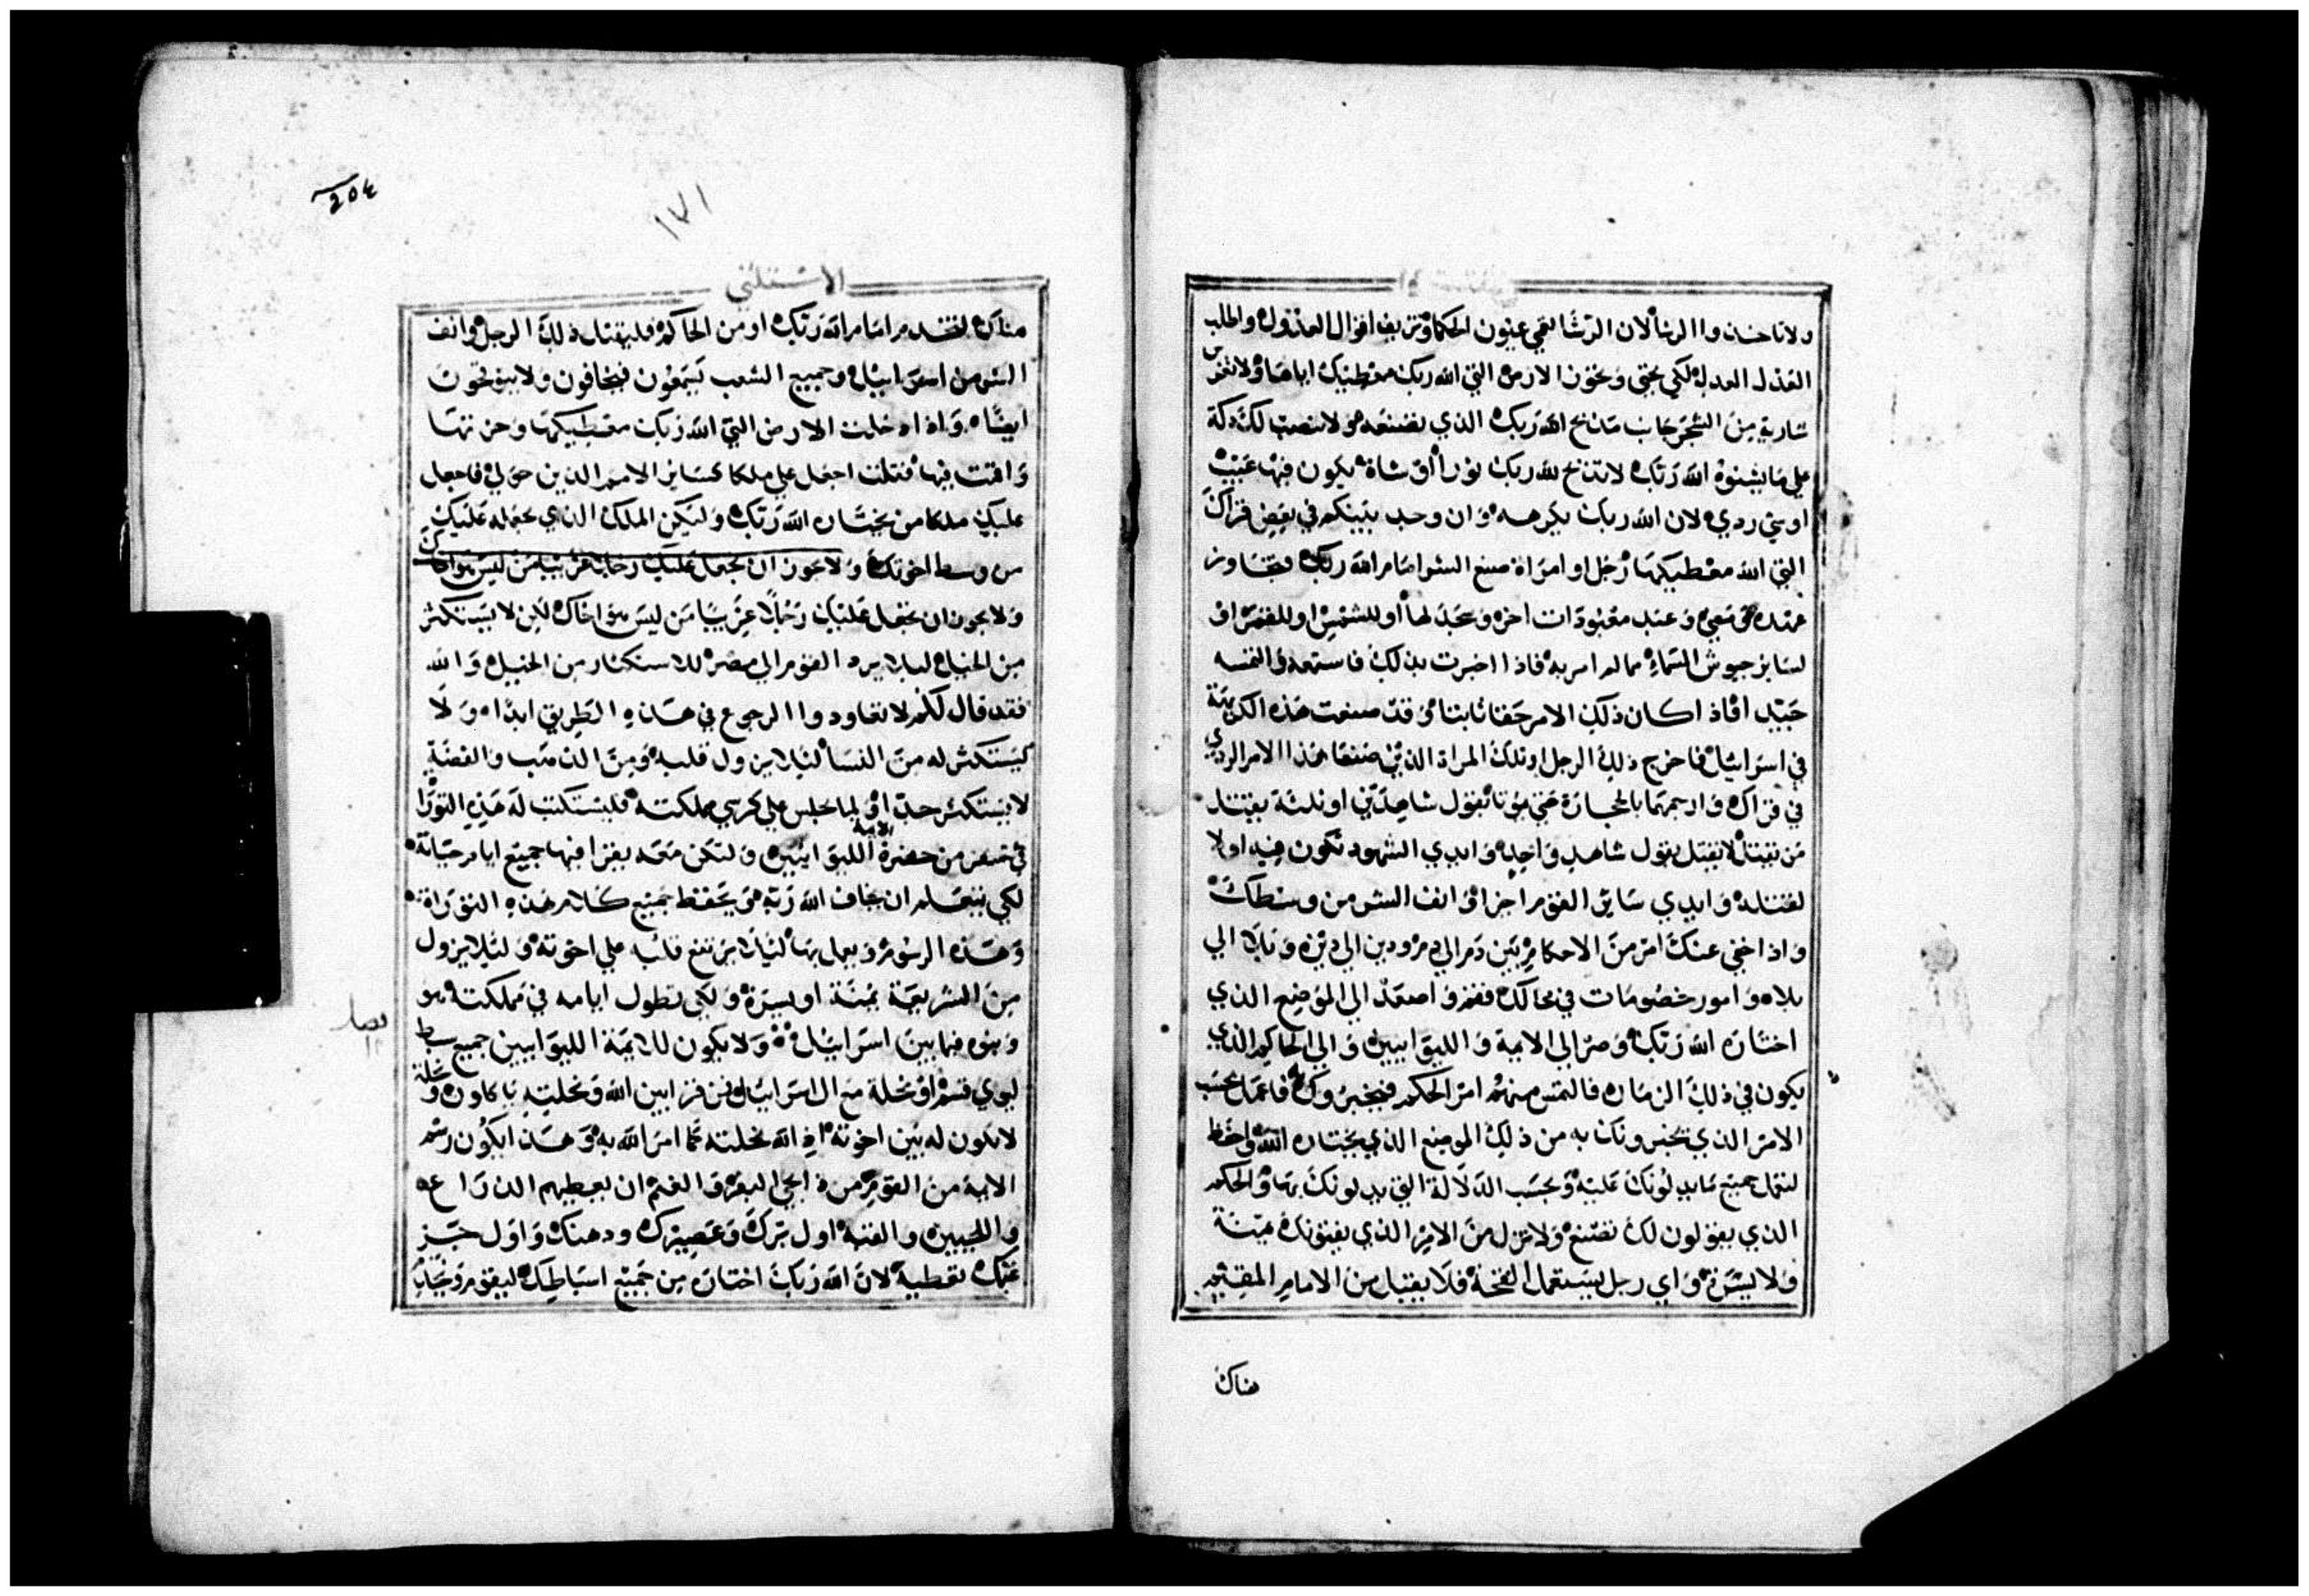 ولا تاخذوا الرشا لان الرشا تعمي عيون الحكما وتزيف اقوال العدول واطلب
العدل العدل لكي تحيى وتحوز الارض التي الله ربك معطيك اياها ولا تغرس
سارية من الشجر جانب مذبح الله ربك الذي تصنعه ولا تنصب لك دكة
علي ما يشنوه الله ربك لا تذبح لله ربك ثورا او شاة يكون فيها عيب
او شي ردي لان الله ربك يكرهه وان وجد بينكم في بعض قراك
التي الله معطيكها رجل او امراة صنع السو امام الله ربك فتجاوز
عهده ومضي وعبد معبودات اخر وسجد لها او للشمس او للقمر او
لسائر جيوش السماء مما لم امر به فاذا اخبرت بذلك فاستمعه والتمسه
جيدا فاذا كان ذلك الامر حقا ثابتا وقد صنعت هذه الكريهة
في اسرائيل فاخرج ذلك الرجل او تلك المراة الذين صنعا هذا الامر الردي
في قراك وارجمهما بالحجارة حتي يموتا بقول شاهدين او ثلثة يقتل
من يقتل لا يقتل بقول شاهد واحد وايدي الشهود تكون فيه اولا
لقتله وايدي سائر القوم اخرا وانف السو من وسطك
واذا خفي عنك امر من الاحكام بين دم الي دم ودين الي دين وبلا الي
بلا وامور خصومات في محالك فقم واصعد الي الموضع الذي
اختاره الله ربك وصر الي الايمة والليوانيين والي الحاكم الذي
يكون في ذلك الزمان فالتمس منهم امر الحكم فيخبروك به فاعمل بحسب
الامر الذي يخبرونك به من ذلك الموضع الذي يختاره الله واحفظ
لتعمل جميع ما يدلونك عليه وبحسب الدلالة التي يدلونك بها والحكم
الذي يقولون لك تصنع ولا تزل من الامر الذي يفتونك يمنة
ولا يسرة واي رجل يستعمل القحة فلا يقبل من الامام المقيم
هناك
204
١٧١
الاستثني
هناك ليخدم امام الله ربك او من الحاكم فليقتل ذلك الرجل وانف
السو من اسرائيل وجميع الشعب يسمعون فيخافون ولا يتوقحون
ايضا واذا دخلت الارض التي الله ربك معطيكها وحزتها
واقمت فيها فقلت اجعل علي ملكا كسائر الامم الذين حولي فاجعل
عليك ملكا من يختاره الله ربك وليكن الملك الذي تجعله عليك
من وسط اخوتك ولا يجوز ان تجعل عليك رجلا غريبا من ليس هو اخاك
ولا يجوز ان تجعل عليك رجلا غريبا من ليس هو اخاك لكن لا يستكثر
من الخيل ليلا يرد القوم الي مصر للاستكثار من الخيل والله
فقد قال لكم لا تعاودوا الرجوع في هذه الطريق ابدا ولا
يستكثر له من النسا ليلا يزول قلبه ومن الذهب والفضة
لا يستكثر جدا ولما يجلس علي كرسي مملكته فليستكتب له هذه التورا
في مصحف من حضرة الايمة الليوانيين ولتكن معه يقرا فيها جميع ايام حياته
لكي يتعلم ان يخاف الله ربه ويحفظ جميع كلام هذه التوراة
وهذه الرسوم ويعمل بها ليلا يرتفع قلبه علي اخوته وليلا يزول
من الشريعة يمنة او يسرة ولكي تطول ايامه في مملكته هو
وبنوه فيما بين اسرائيل ولا يكون للايمة الليوانيين جميع سبط
ليوي قسم او نحلة مع ال اسرائيل فمن قرابين الله ونحلته ياكلون ونحلة
لا تكون له بين اخوته اذ الله نحلته كما امر الله به وهذا يكون رسم
الايمة من القوم من ذابحي البقر والغنم ان يعطيهم الذراع
واللحيين والقبة اول برك وعصيرك ودهنك واول جز
غنمك تعطيه لان الله ربك اختاره من جميع اسباطك ليقوم
فصل